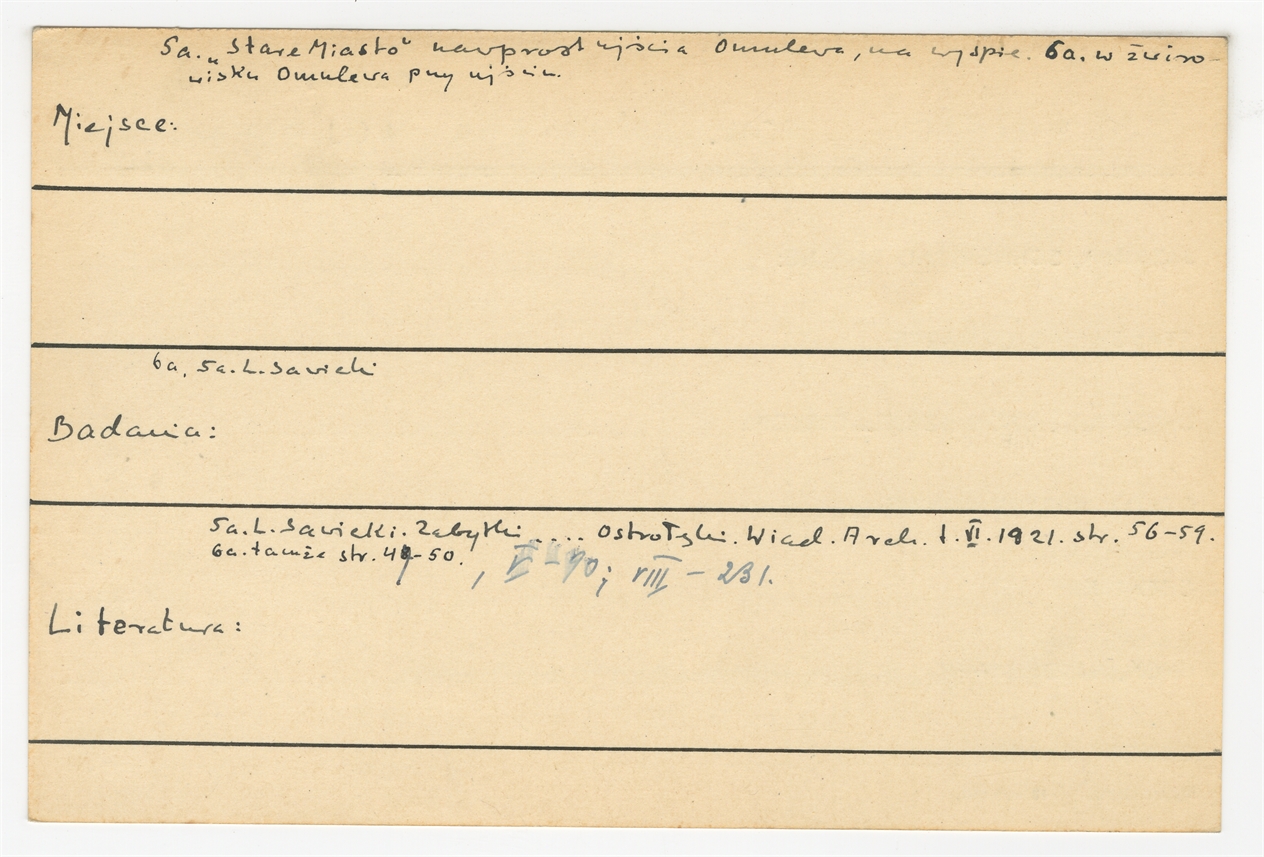 5a. „Stare Miasto" nawprost ujścia Omulewa, na wyspie. 6a. w żwiro-
wisku Omulewa przy ujściu.
Miejsce:
6a, 5a. L. Sawicki
Badania:
5a. L. Sawicki. Zabytki .... Ostrołęki. Wiad. Arch. t. VI. 1921. str. 56-59.
6a. tamże str. 49-50.
, ; VIII - 231.
Literatura: